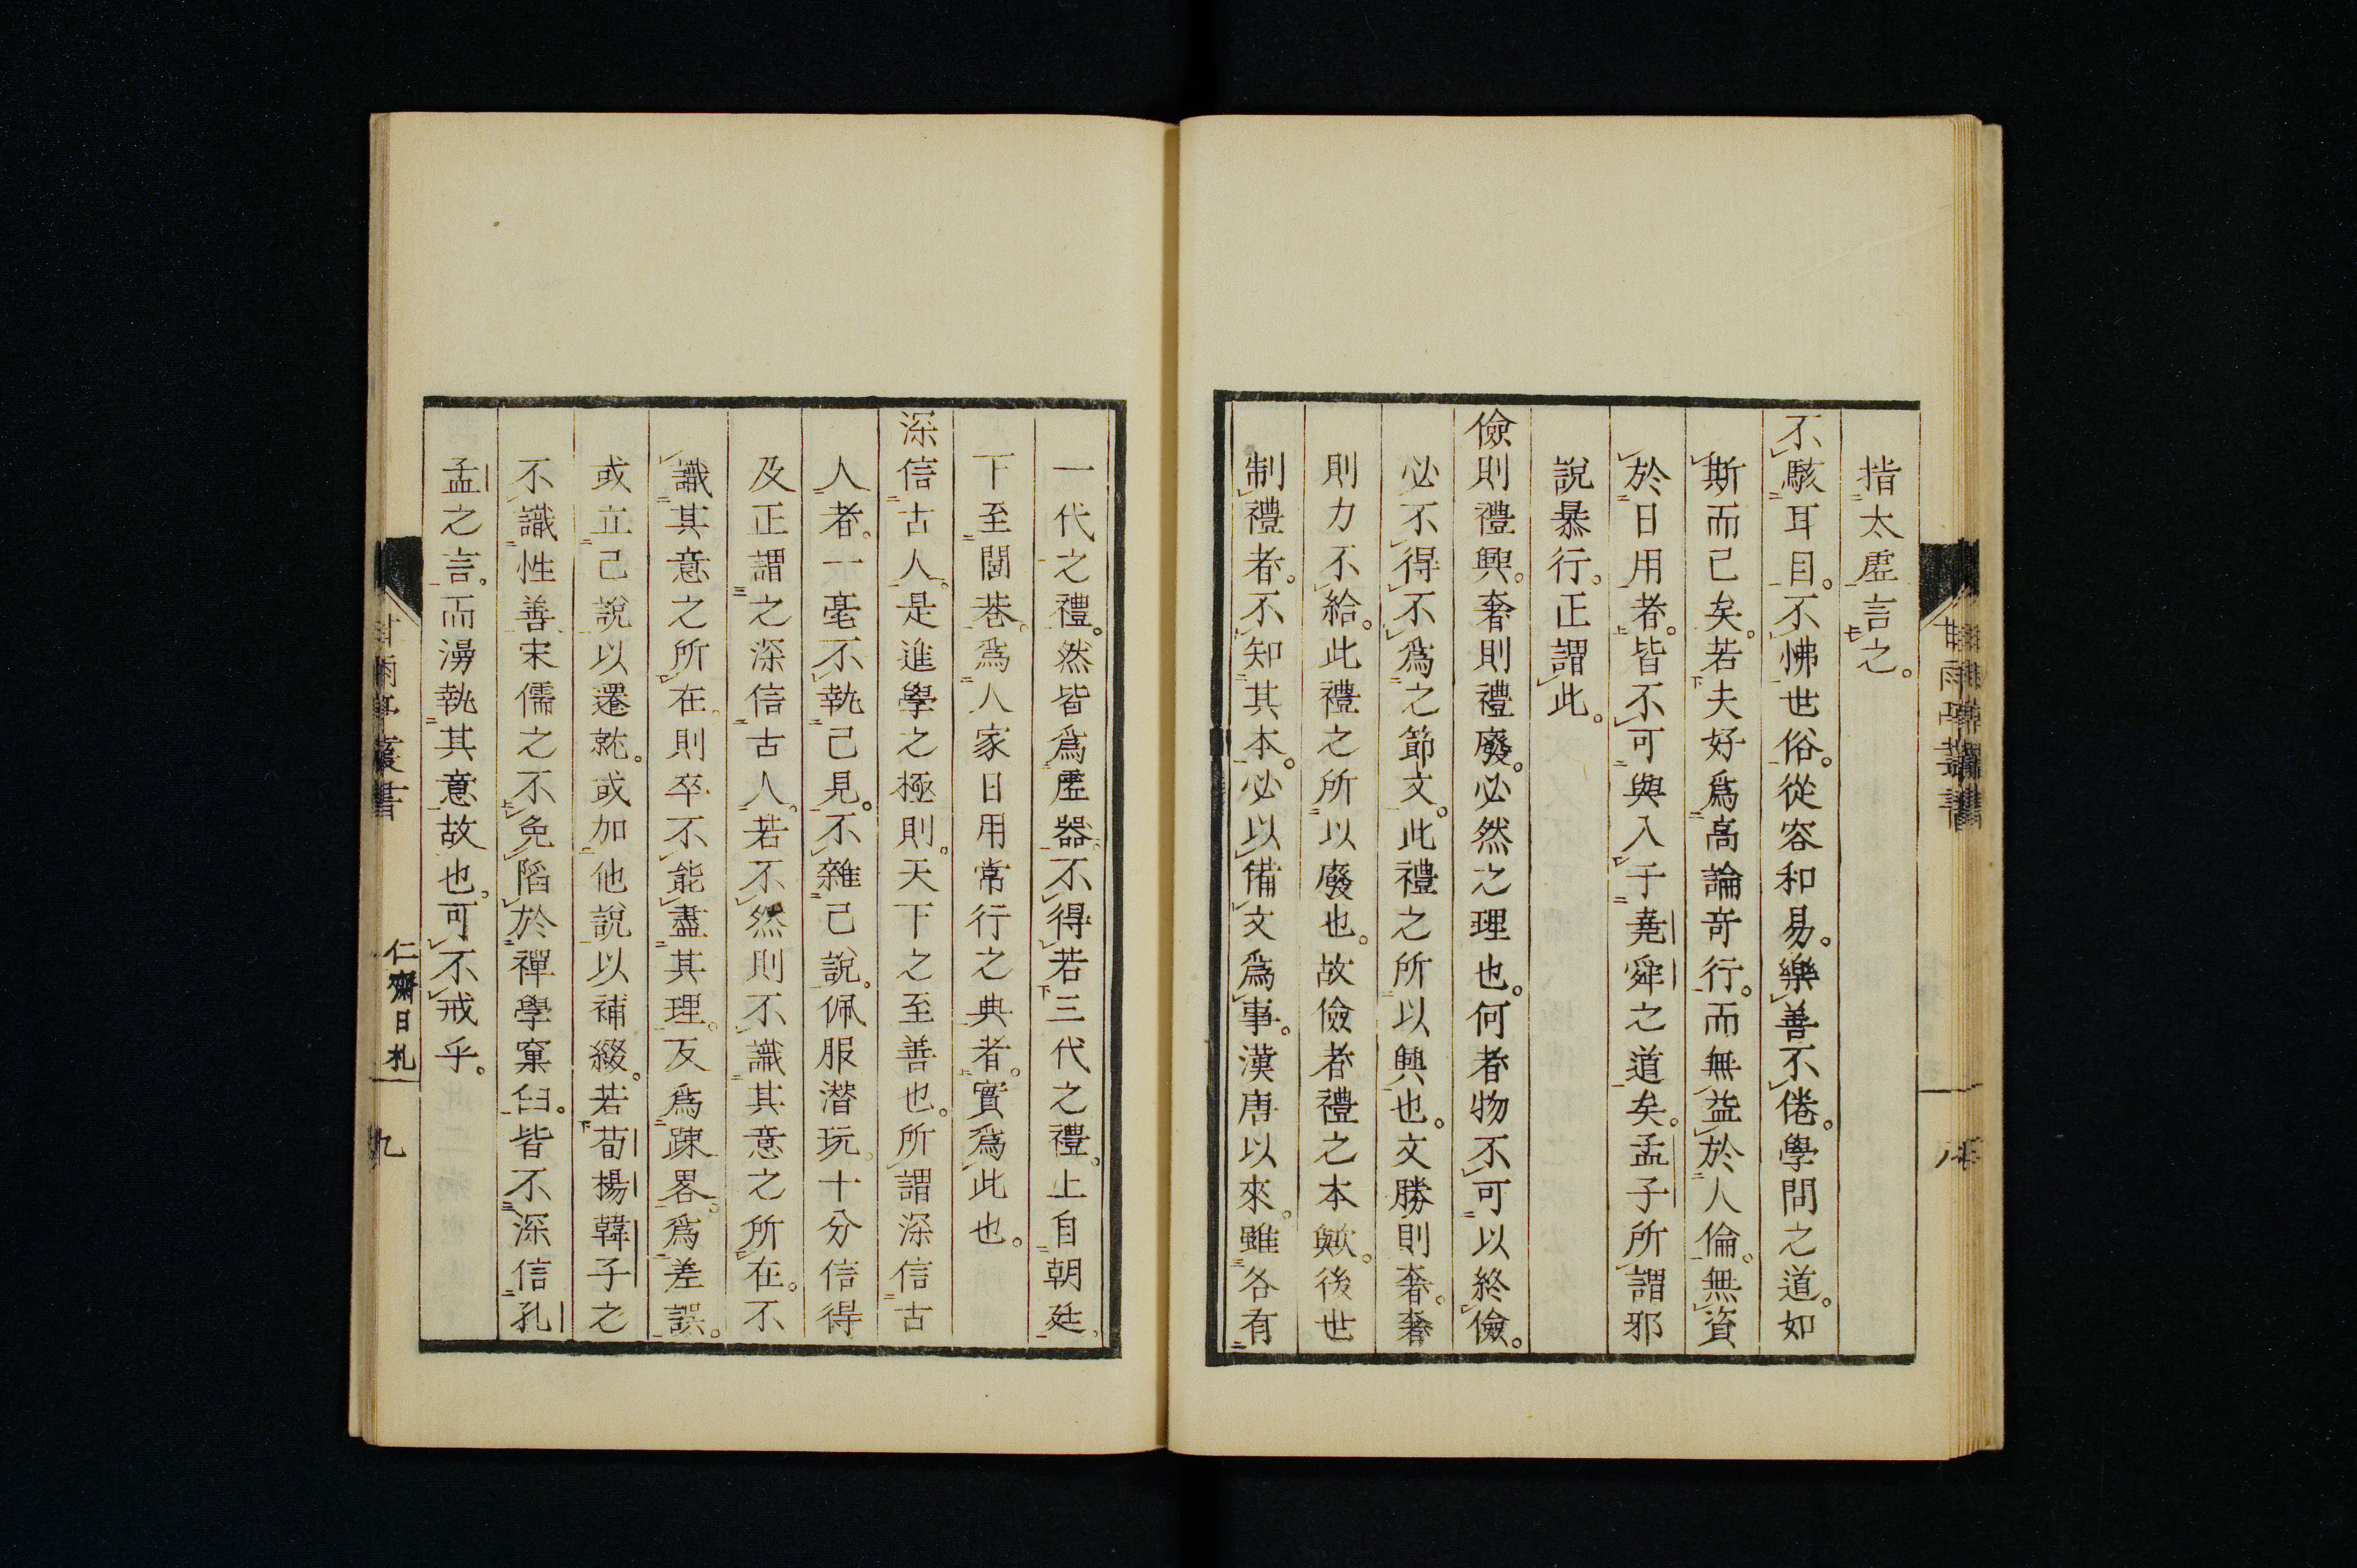 指太虛言之。
不駭耳目。不怫世俗。從容和易。樂善不倦。學問之道。如
斯而已矣。若夫好爲高論奇行。而無益於人倫。無資
於日用者。皆不可與入于堯舜之道矣。孟子所謂邪
說暴行。正謂此。
儉則禮興。奢則禮廢。必然之理也。何者物不可以終儉。
必不得不爲之節文。此禮之所以興也。文勝則奢。奢
則力不給。此禮之所以廢也。故儉者禮之本歟。後世
制禮者。不知其本。必以備文爲事。漢唐以來。雖各有
一代之禮。然皆爲虛器。不得若三代之禮。上自朝廷。
下至閭巷。爲人家日用常行之典者。實爲此也。
深信古人。是進學之極則。天下之至善也。所謂深信古
人者。一毫不執己見。不雜己說。佩服潛玩。十分信得
及正謂之深信古人。若不然則不識其意之所在。不
識其意之所在。則卒不能盡其理。反爲踈畧。爲差誤。
或立己說以遷就。或加他說以補綴。若荀楊韓子之
不識性善宋儒之不免陷於禪學窠臼。皆不深信孔
孟之言。而漫執其意故也。可不戒乎。
甘雨亭叢書
仁齋日札
九